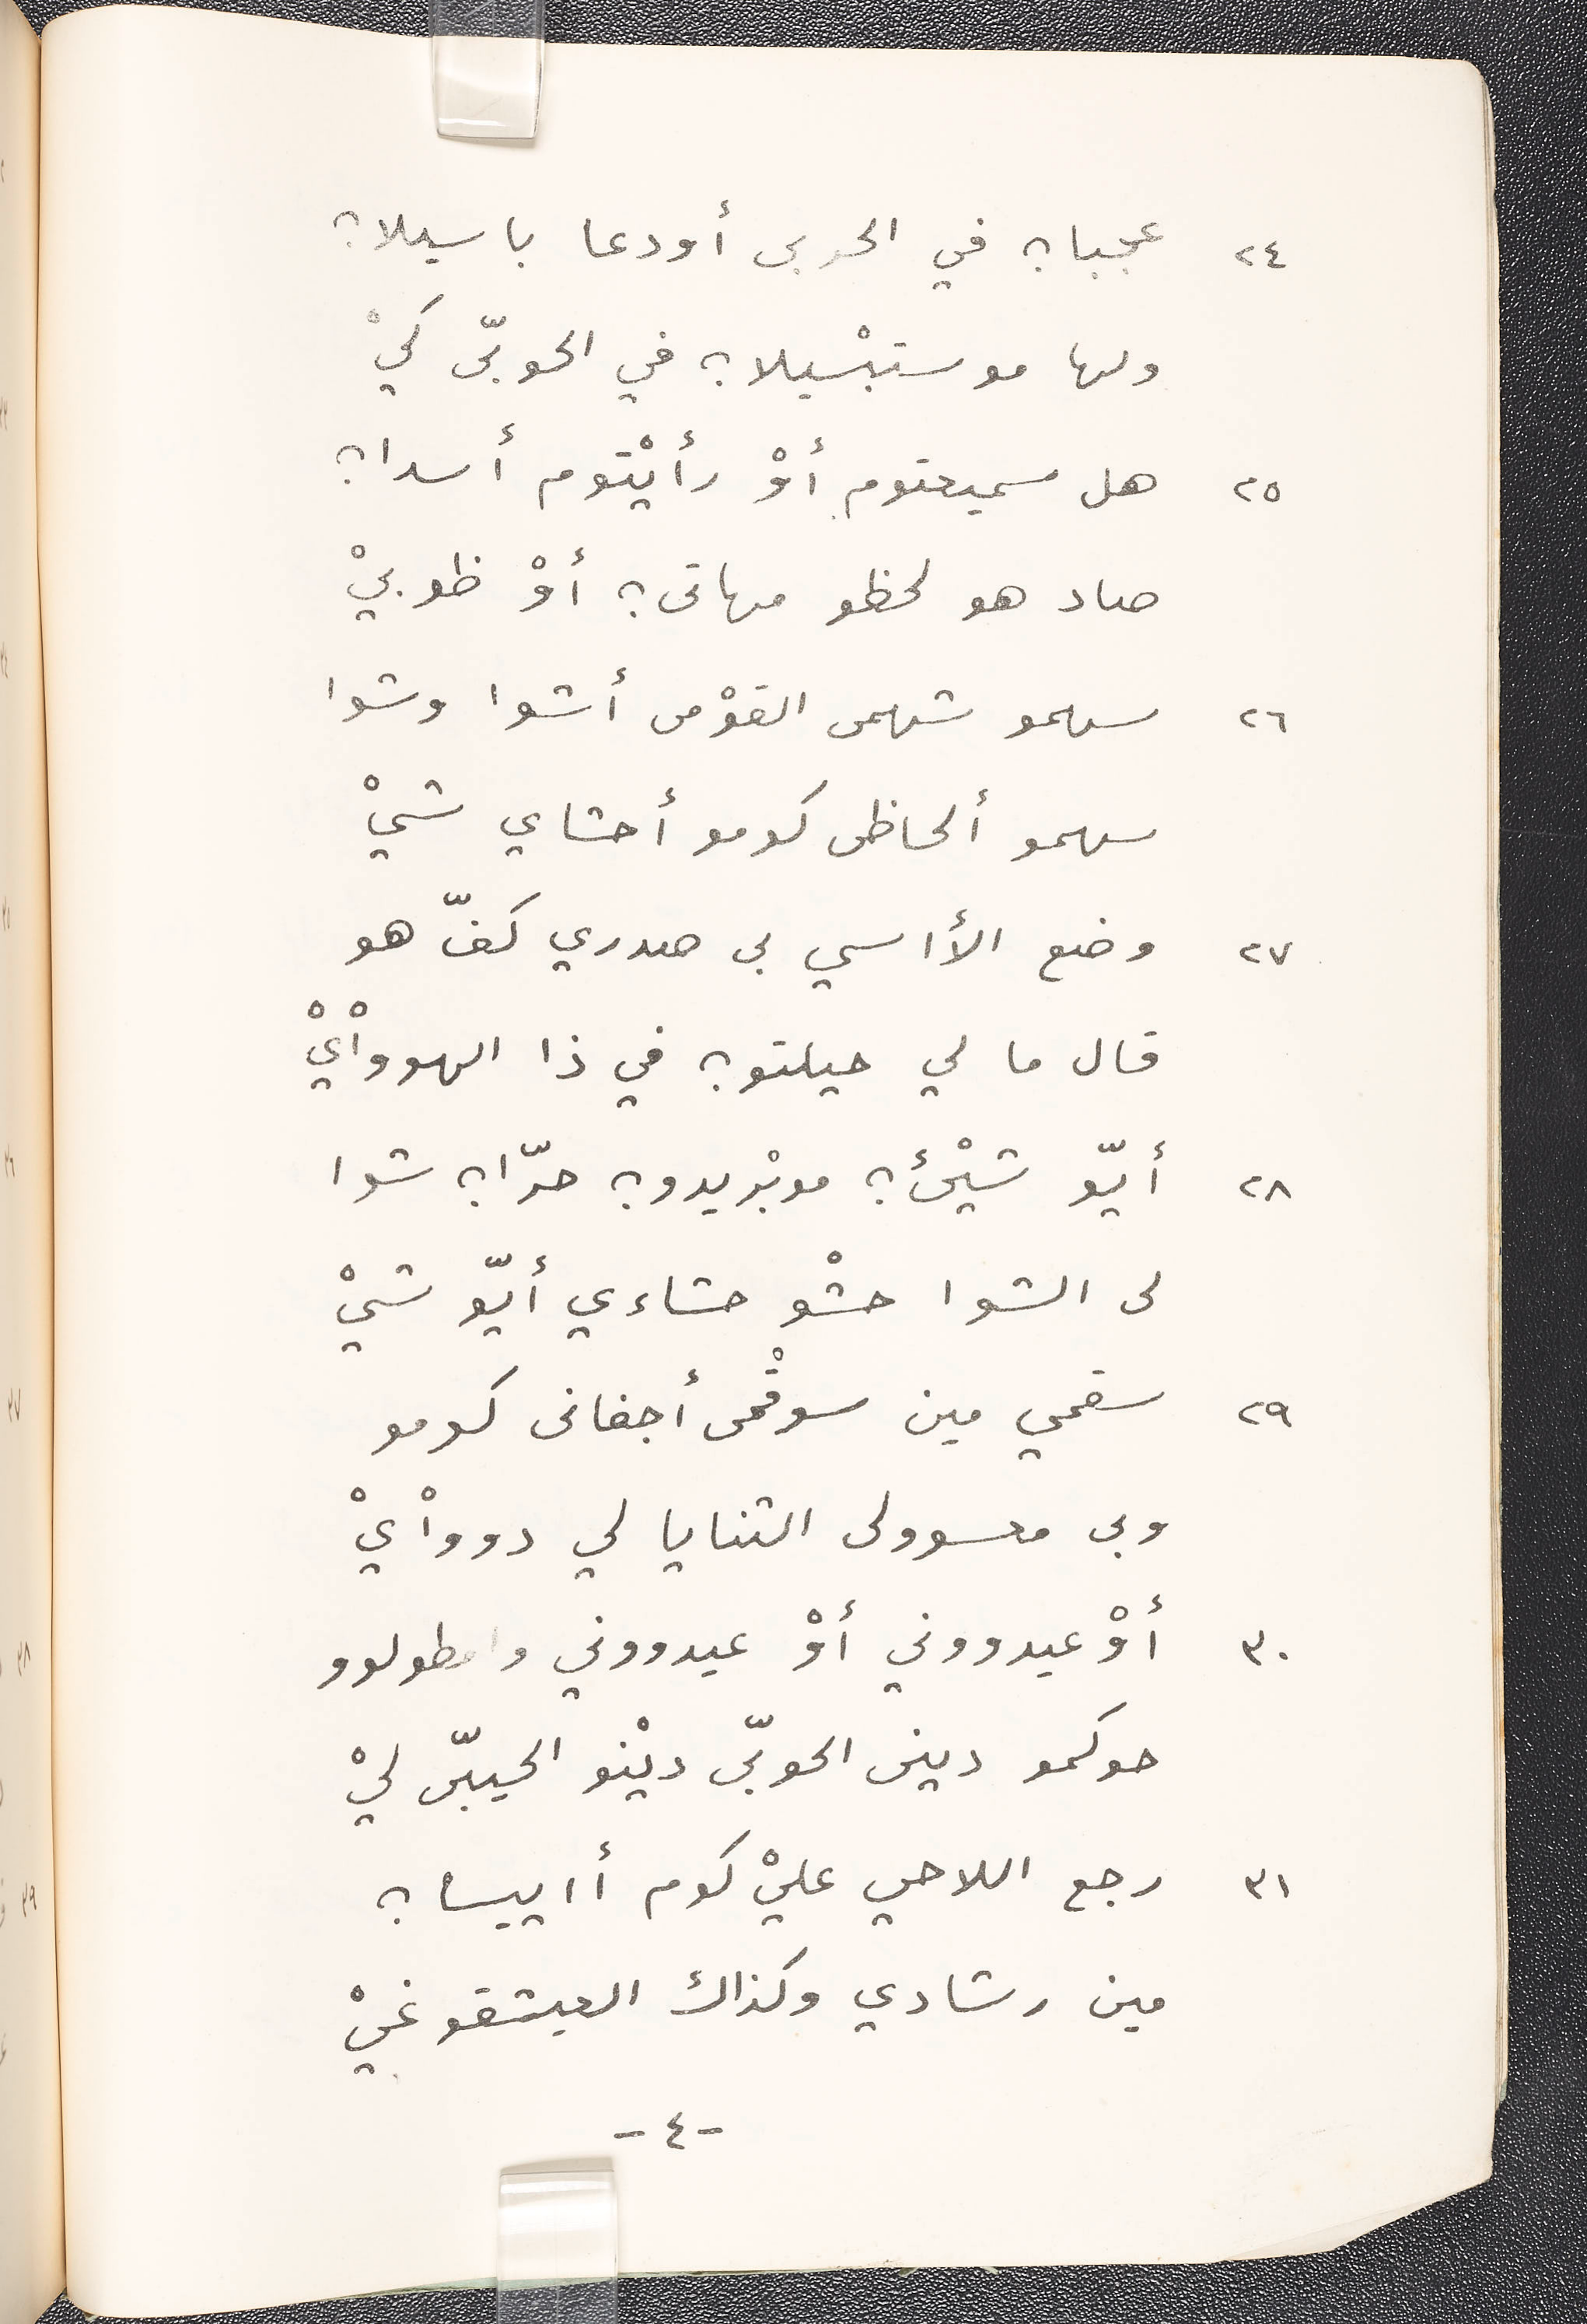 ٢٤ عجبا؟ في الحربى أودعا باسيلا؟
ولها موستبْسيلا؟ في الحوبّى كيْ
٢٥ هل سميعتوم أوْ رأيْتوم أسدا؟
صاد هو لحظو مهاتى؟ أوْ ظوبيْ
٢٦ سهمو شهمى القوْمى أشوا وشوا
سهمو ألحاظى كومو أحشاي شيْ
٢٧ وضع الأاسي بى صدري كفّ هو
قال ما لي حيلتو؟ في ذا الهوواْيْ
٢٨ أيّو شيْئ؟ موبْريدو؟ حرّا؟ شوا
لى الشوا حشْو حشاءي أيّو شيْ
٢٩ سقمي مين سوقْمى أجفانى كومو
وبى معسوولى الثنايا لي دوواْيْ
٣٠ أوْعيدووني أوْ عيدووني وامطولوو
حوكمو دينى الحوبّى ديْنو الحيبّى ليْ
٣١ رجع اللاحي عليْكوم أاييسا؟
مين رشادي وكذاك العيشقو غيْ
-٤-